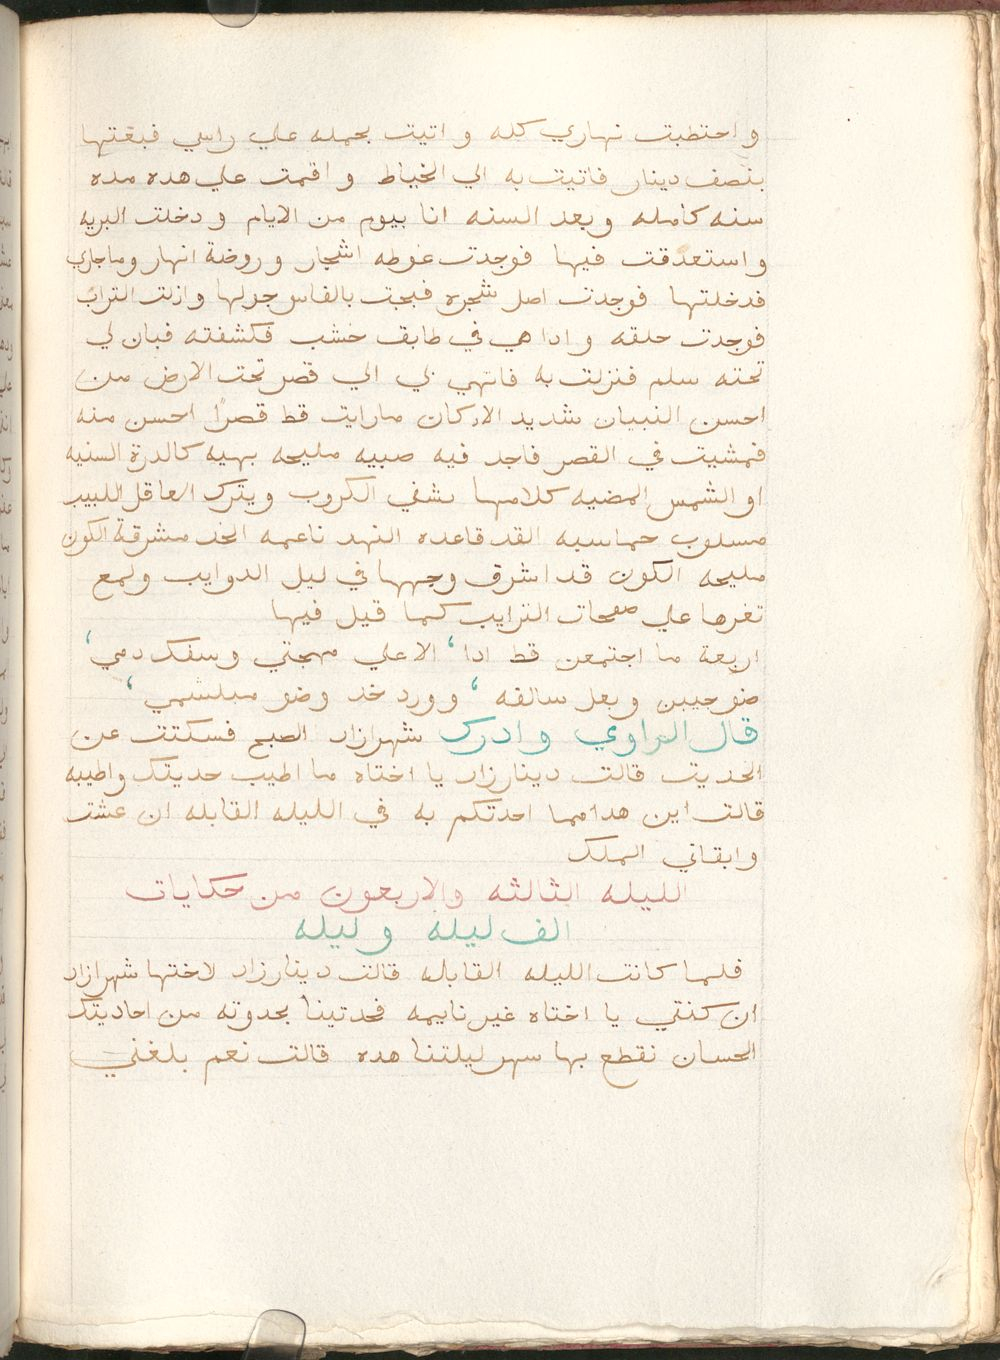 واحتطبت نهاري كله واتيت بحمله علي راسي فبعتها
بنصف دينار فاتيت به الي الخياط واقمت علي هده مده
سنه كامله وبعد السنه انا بيوم من الايام ودخلت البريه
واستعدقت فيها فوجدت غوطه اشجار وروضة انهار وماجاري
فدخلتها فوجدت اصل شجره فبحت بالفاس حولها وازلت التراب
فوجدت حلقه وادا هي في طابق خشب فكشفته فبان لي
تحته سلم فنزلت به فانتهي بي الي قصر تحت الارض من
احسن البنيان شديد الاركان مارايت قط قصرًا احسن منه
فمشيت في القصر فاجد فيه صبيه مليحه بهيه كالدرة السنيه
او الشمس المضيه كلامها يشفي الكروب ويترك العاقل اللبيب
مسلوب خماسيه القد قاعده النهد ناعمه الخد مشرقة الكون
مليحه الكون قد اشرق وجهها في ليل الدوايب ولمع
تغرها علي صفحات الترايب كما قيل فيها
اربعة ما اجتمعن قط ادا ، الا علي مهجتي وسفك دمي ،
ضو جبين وبعل سالفه ، وورد خد وضو مبلشمي ،
قال الراوي وادرك شهرازاد الصبح فسكتت عن
الحديت قالت دينارزاد يا اختاه ما اطيب حديتك واطيبه
قالت اين هدا مما احدتكم به في الليله القابله ان عشت
وابقاني الملك
الليله الثالثه والاربعون من حكايات
الف ليله وليله
فلما كانت الليله القابله قالت دينارزاد لاختها شهرازاد
ان كنتي يا اختاه غير نايمه فحدتينا بحدوته من احاديتك
الحسان نقطع بها سهر ليلتنا هده قالت نعم بلغني